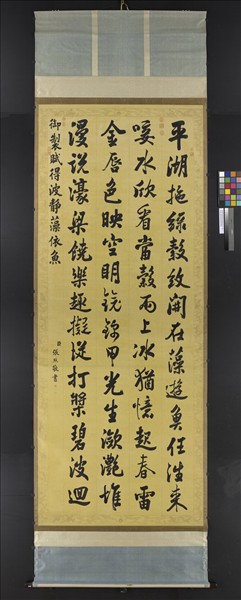 平湖拖綠縠紋開在藻遊魚任往來
唼水欣看當穀雨上冰猶憶起春雷
金唇色映空明鏡錦甲光生瀲灩堆
漫說濠梁饒樂趣擬從打槳碧波迴
御製賦得波靜藻依魚
臣張敬書